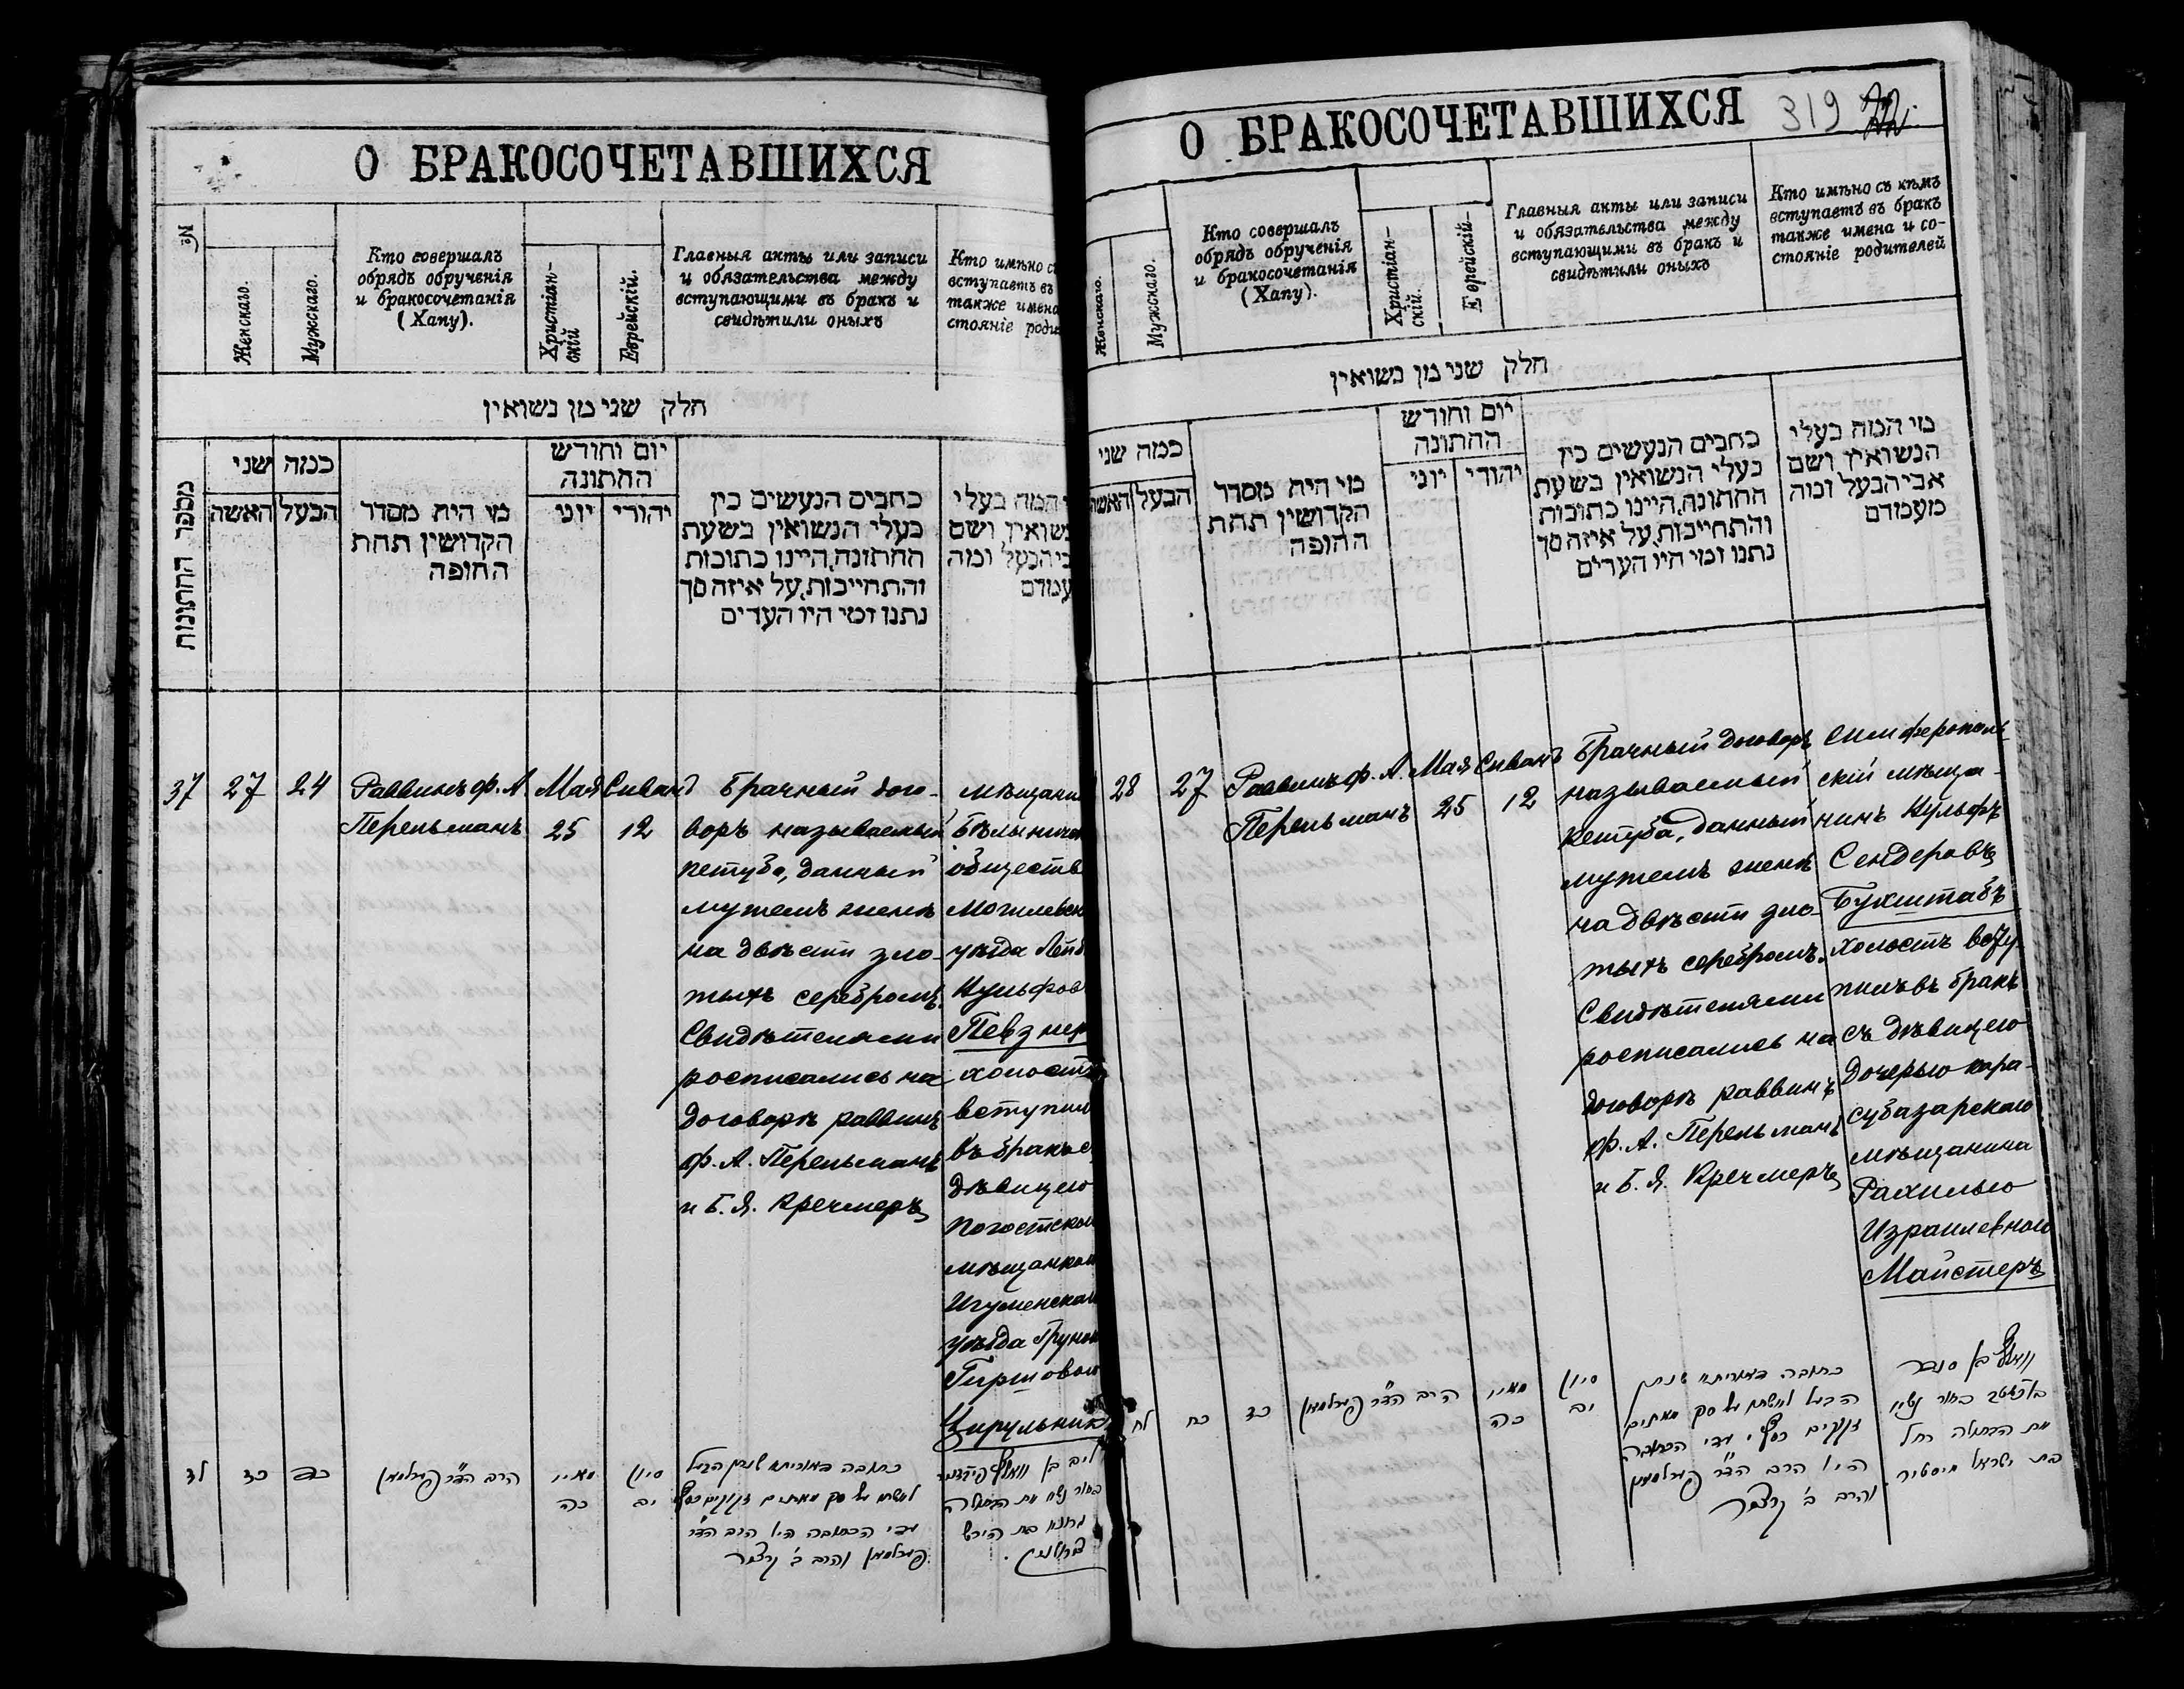 О БРАКОСОЧЕТАВШИХСЯ
№
Женскаго.
Мужскаго.
Кто совершалъ
обрядъ обрученія
и бракосочетанія
(Хапу).
Христіан-
скій
Еврейскій.
Главныя акты или записи
и обязательства между
вступающими въ бракъ и
свидѣтили оныхъ
Кто имѣно с
вступаетъ въ
также имена
стояніе роди
חלק שני מן נשואין
מספר החתונות
כמה שני
האשה
הבעל
מי היה מסדר
הקדושין תחת
החופה
יום וחודש
החתונה
יהודי
יוני
כתבים הנעשים בין
בעלי הנשואין בשעת
החתונה, היינו כתובות
והתחייבות, על איזה סך
נתנו ומי היו העדים
המה בעלי
נשואין ושם
בי הבעל ומה
עמדם
37
27
24
Раввинъ ф. А.
Перельманъ
Мая
25
Сиванъ
12
Брачный дого-
воръ называемый
кетуба, данный
мужемъ женѣ
на двѣсти зло-
тыхъ серебромъ.
Свидѣтелями
росписались на
договорѣ раввинъ
ф. А. Перельманъ
и Б. Я. Кречмеръ
мѣщани
Бѣлынич
обществ
Могилевск
уѣзда Лейб
Вульфов
Певзнер
холостъ
вступил
въ бракъ с
дѣвицею
Погостско
мѣщанко
Игуменска
уѣзда Груне
Гиршовою
Цирульник
לד
כד
הרב הד"ר פערלמאן
מאיי
כה
סיון
יב
כתובה דאורייתא שנתן הבעל
לאשתו על סך מאתים זקוקים כסף
עדי הכתובה היו הרב הד"ר
פערלמאן והרב ב' קרצמר
ליב בן וואלף פעווזנער
בחור נשא את הבתולה
גרוניא בת הירש
О БРАКОСОЧЕТАВШИХСЯ
319
Женскаго.
Мужскаго.
Кто совершалъ
обрядъ обрученія
и бракосочетанія
(Хапу).
Христіан-
скій.
Еврейскій-
Главныя акты или записи
и обязательства между
вступающими въ бракъ и
свидѣтили оныхъ
Кто имѣно съ кѣмъ
вступаетъ въ бракъ
также имена и со-
стояніе родителей
חלק שני מן נשואין
כמה שני
האשה
הבעל
מי היה מסדר
הקדושין תחת
החופה
יום וחודש
החתונה
יהודי
יוני
כתבים הנעשים בין
בעלי הנשואין בשעת
החתונה, היינו כתובות
והתחייבות, על איזה סך
נתנו ומי היו העדים
מי המה בעלי
הנשואין ושם
אבי הבעל ומה
מעמדם
28
27
Раввинъ ф. А.
Перельманъ
Мая
25
Сиванъ
12
Брачный договоръ
называемый
кетуба, данный
мужемъ женѣ
на двѣсти зло-
тыхъ серебромъ.
Свидѣтелями
росписались на
договорѣ раввинъ
ф. А. Перельманъ
и Б. Я. Кречмеръ
Симферополь-
скій мѣща-
нинъ Вульфъ
Сендеровъ
Букштабъ
холостъ всту-
пилъ въ бракъ
съ дѣвицею
дочерью кара-
субазарскаго
мѣщанина
Рахилью
Израилевною
Майстеръ
לח
כח
כד
הרב הד"ר פערלמאן
מאיי
כה
סיון
יב
כתובה דאורייתא שנתן
הבעל לאשתו על סך מאתים
זקוקים כסף עדי הכתובה
היו הרב הד"ר פערלמאן
והרב ב' קרצמר
וואלף בן סנדר
בוקשטב בחור נשא
את הבתולה רחל
בת ישראל מיסטיר.